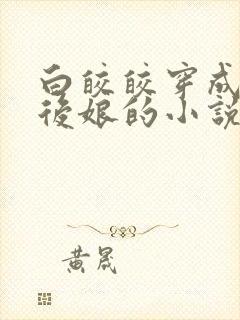 白皎皎穿成
後娘的小說
黃晟